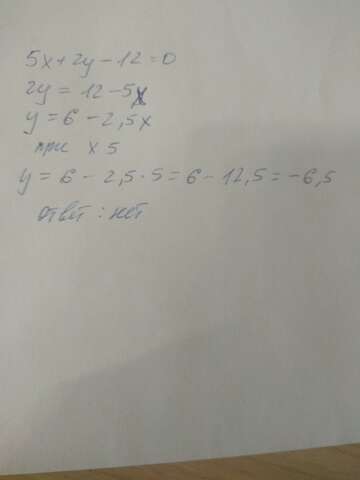 5x+2y-12=0
2y = 12-5x
y = 6 - 2,5x
при x 5
y = 6 - 2,5·5 = 6 - 12,5 = -6,5
ответ : нет